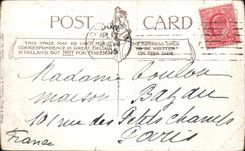 POST CARD
THIS SPACE MAY BE USED FOR
CORRESPONDENCE IN GREAT BRITAIN
& IRELAND, BUT NOT FOR FOREIGN
THE ADDRESS ONLY
TO BE WRITTEN
ON THIS SIDE
Madame Toulon
maison Bazau
10 rue des Petits champs
Paris
France